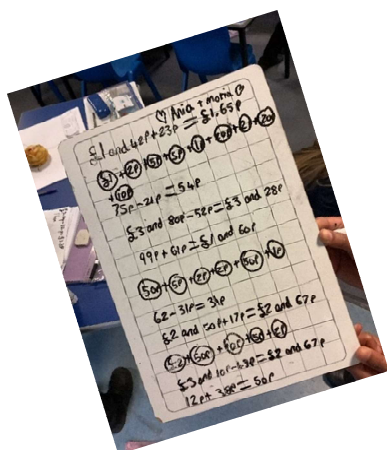 ♡ Aria + Moria ♡
£1 and 42p+23p=£1,65p
£1+2p+5p+5p+1p+20p+2+20p
+10p
75p-21p=54p
£3 and 80p-52p=£3 and 28p
99p+61p=£1 and 60p
50p+5p+2p+2p+50p+1p
62-31p=31p
£2 and 50p+17p=£2 and 67p
£2+50p+10p+5p+
£3 and 10p- =£2 and 67p
12p+38p=50p